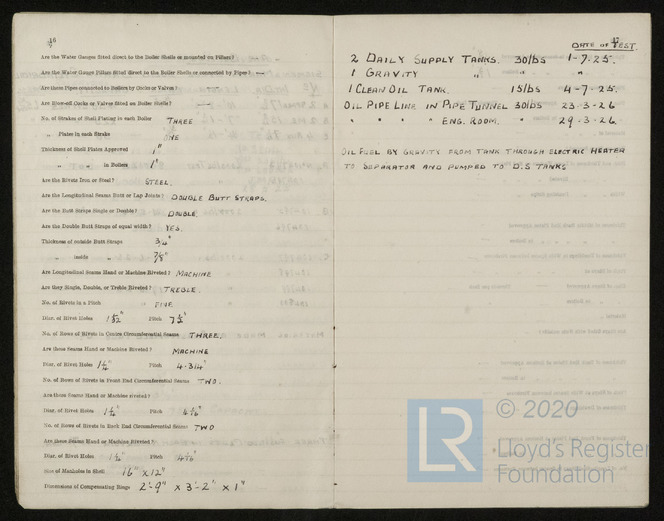 46
Are the Water Gauges fitted direct to the Boiler Shells or mounted on Pillars? —
Are the Water Gauge Pillars fitted direct to the Boiler Shells or connected by Pipes? —
Are these Pipes connected to Boilers by Cocks or Valves? —
Are Blow-off Cocks or Valves fitted on Boiler Shells? —
No. of Strakes of Shell Plating in each Boiler THREE
„ Plates in each Strake ONE
Thickness of Shell Plates Approved 1"
„ „ in Boilers 1"
Are the Rivets Iron or Steel? STEEL.
Are the Longitudinal Seams Butt or Lap Joints? DOUBLE BUTT STRAPS.
Are the Butt Straps Single or Double? DOUBLE.
Are the Double Butt Straps of equal width? YES.
Thickness of outside Butt Straps 3/4"
„ inside „ 7/8"
Are Longitudinal Seams Hand or Machine Riveted? MACHINE
Are they Single, Double, or Treble Riveted? TREBLE.
No. of Rivets in a Pitch FIVE
Diar. of Rivet Holes Pitch
No. of Rows of Rivets in Centre Circumferential Seams THREE.
Are these Seams Hand or Machine Riveted? MACHINE
Diar. of Rivet Holes 1 1/4" Pitch 4.314"
No. of Rows of Rivets in Front End Circumferential Seams TWO.
Are these Seams Hand or Machine riveted?
Diar. of Rivet Holes Pitch
No. of Rows of Rivets in Back End Circumferential Seams TWO
Are these Seams Hand or Machine Riveted?
Diar. of Rivet Holes Pitch
Size of Manholes in Shell 16" X 12"
Dimensions of Compensating Rings 2'-9" X 3'-2" X 1"
47
DATE OF TEST.
2 DAILY SUPPLY TANKS. 30lbs 1-7-25.
1 GRAVITY „ „ „
1 CLEAN OIL TANK. 15lbs 4-7-25.
OIL PIPE LINE IN PIPE TUNNEL 30lbs 23-3-26
„ „ „ „ ENG. ROOM. „ 29-3-26.
OIL FUEL BY GRAVITY FROM TANK THROUGH ELECTRIC HEATER
TO SEPARATOR AND PUMPED TO D.S TANKS
LR
© 2020
Lloyd's Register
Foundation